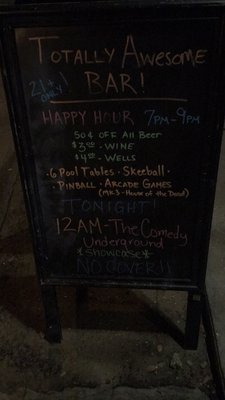 Totally Awesome
21+ only!
BAR!
HAPPY HOUR 7PM-9PM
50¢ OFF All Beer
$3.00 - WINE
$4.00 - WELLS
-6 Pool Tables · Skeeball ·
Pinball · Arcade Games
(MK3 - House of the Dead)
TONIGHT!
12AM - The Comedy
Underground
*Showcase*
NO COVER!!